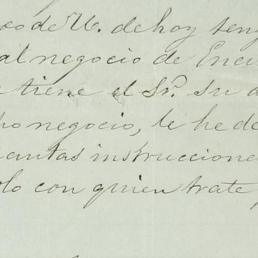 eo de U. de hoy teng
al negocio de Enc
e tiene el Sr. su
ho negocio, le he de
antas instruccione
olo con quien trate